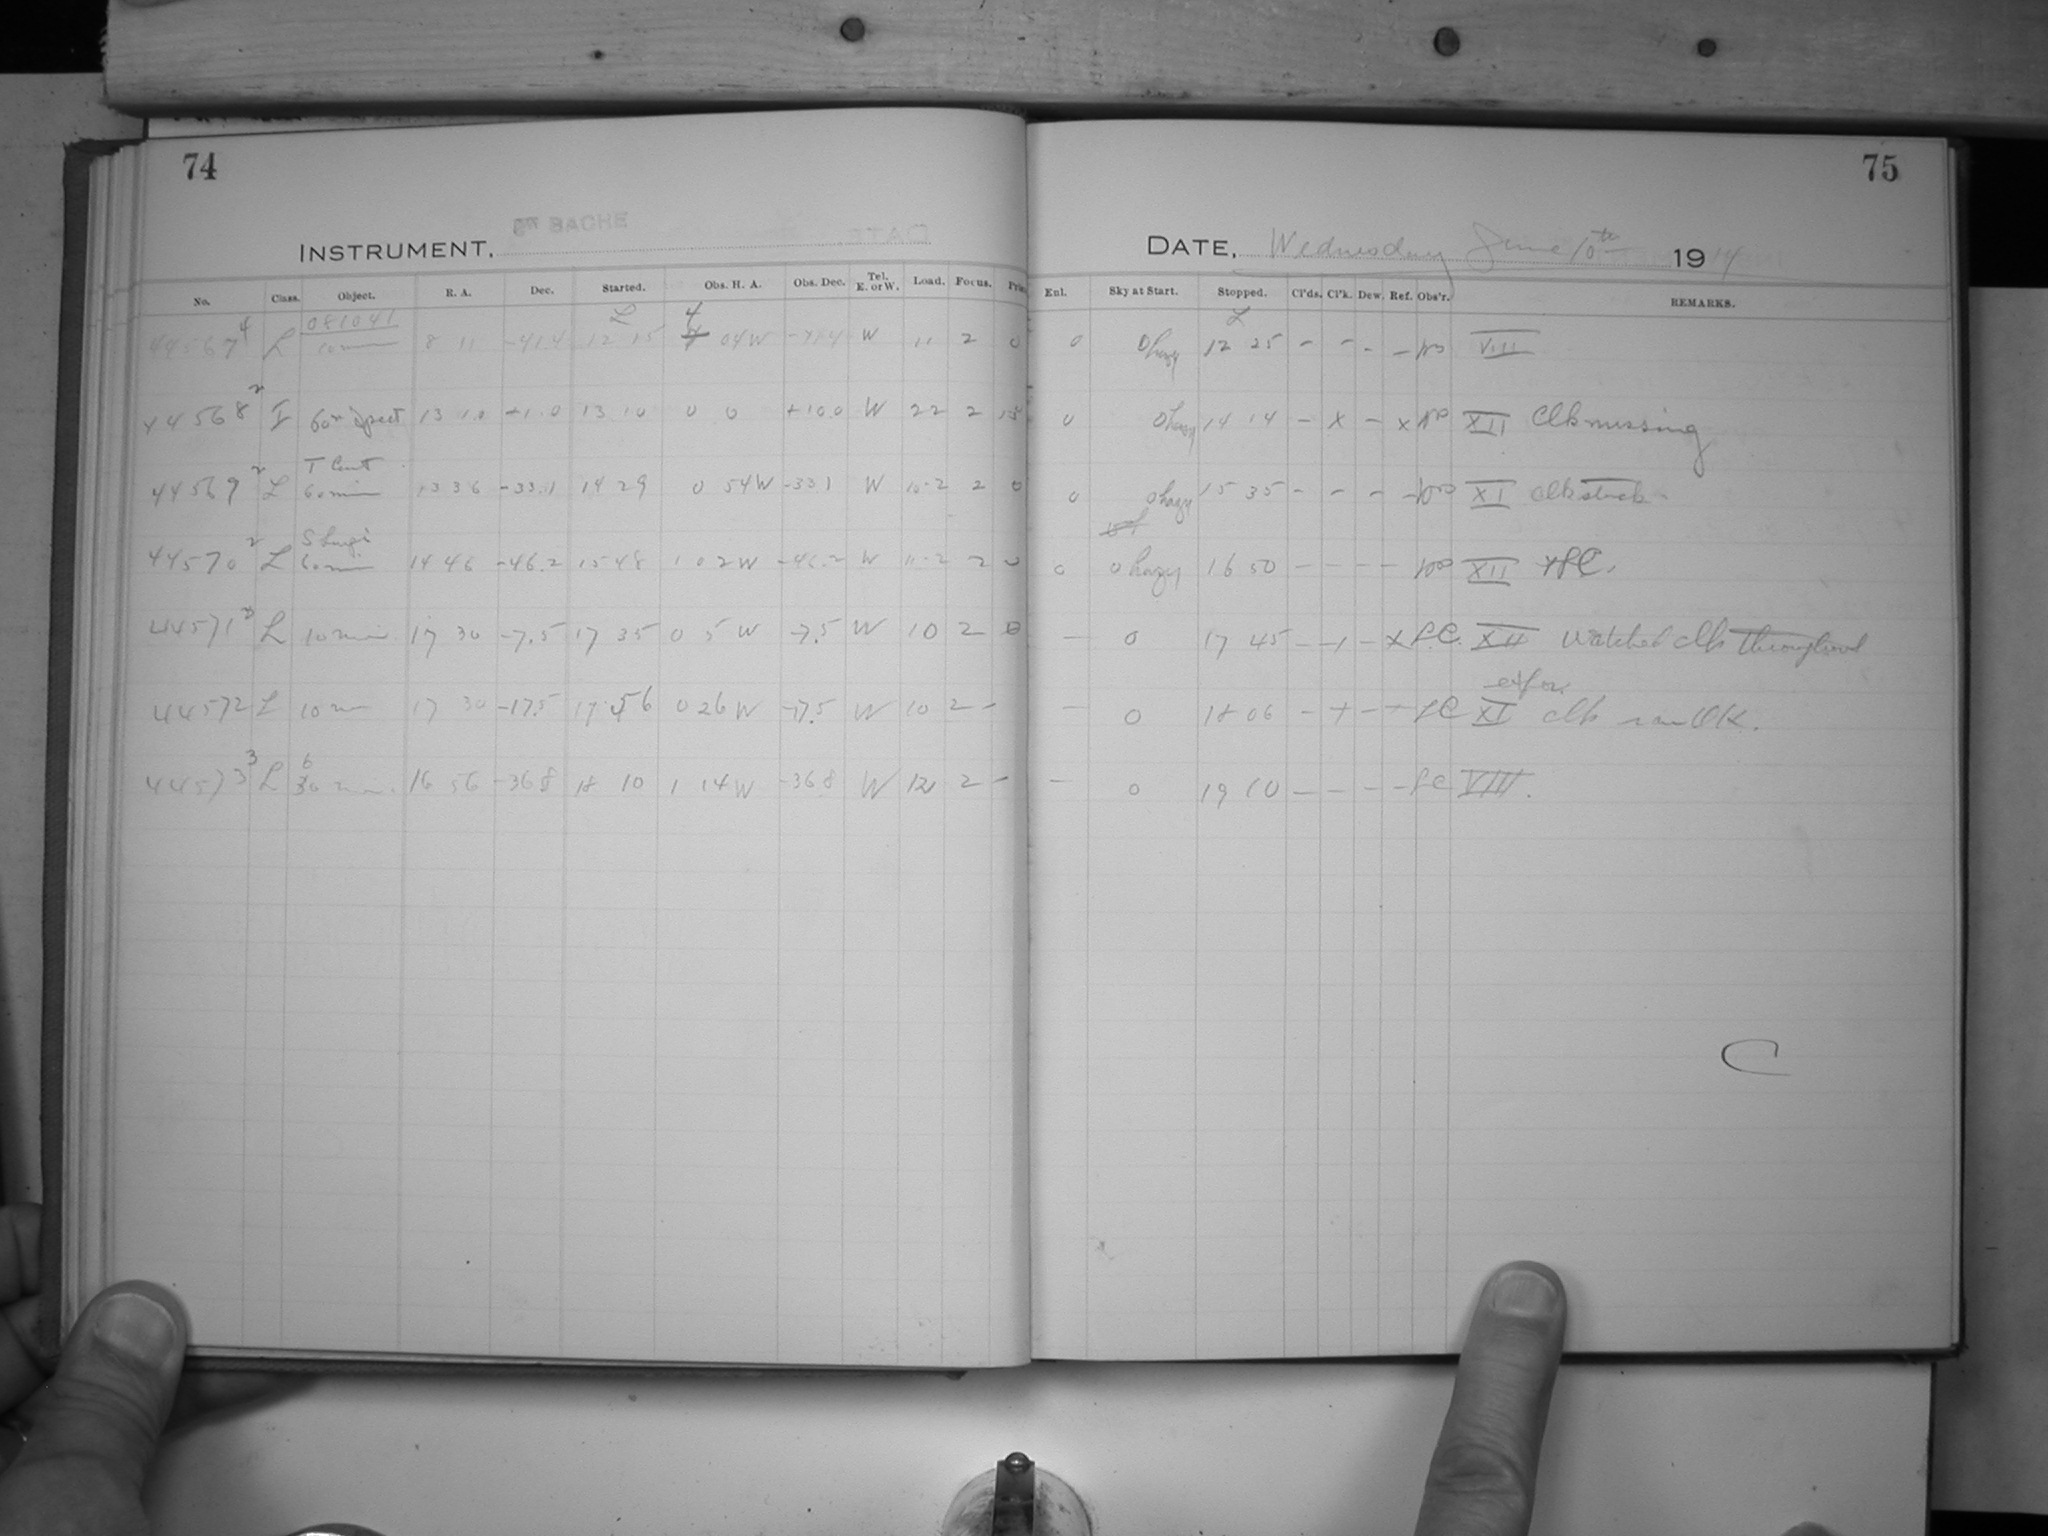 74
INSTRUMENT,
No. Class. Object. R. A. Dec. Started. Obs. H. A. Obs. Dec. Tel. E. or W. Load. Focus.
081041
44567 L 10 min 8 11 -41.4 12 15 4 04 W -41.4 W 11 2 0
44568 I 60m 13 10 13 10 0 0 +10.0 W 22 2
T Cent
44569 L 60 min 13 36 -33.1 14 29 0 54 W -33.1 W 10-2 2 0
S Lupi
44570 L 60 min 14 46 -46.2 15 48 1 02 W -46.2 W 11-2 2 0
44571 L 10 min. 17 30 -7.5 17 35 0 5 W -7.5 W 10 2
44572 L 10 m 17 30 -17.5 17 56 0 26 W -17.5 W 10 2 -
44573 L 16 56 -36.8 18 10 1 14 W -36.8 W 12 2 -
75
DATE, Wednesday June 10th 1914
Enl. Sky at Start. Stopped. Cl'ds. Cl'k. Dew. Ref. Obs'r. REMARKS.
0 0 hazy 12 25 - - - - VIII
0 0 hazy 14 14 - x - x XII Clk missing
0 0 hazy 15 35 - - - - XI clk stuck
0 0 hazy 16 50 - - - - XII
- 0 17 45 - + - x L.C. XII watched clk throughout
expos.
- 0 18 06 - + - + LC XI clk ran OK.
- 0 19 10 - - - - LC VIII.
C